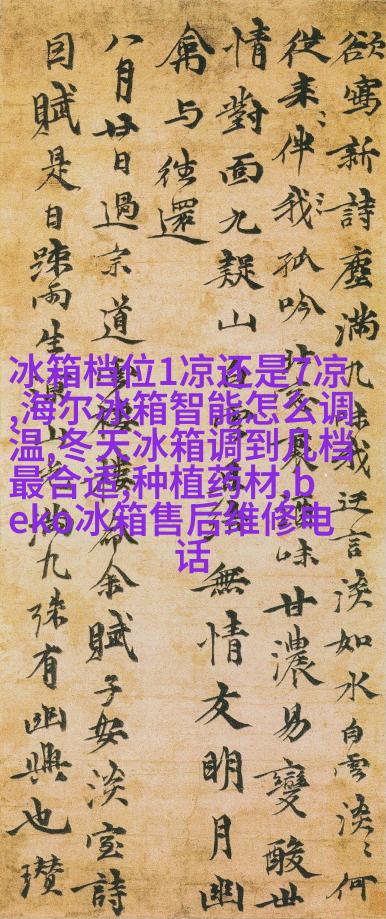 冰箱档位1凉还是7凉
,海尔冰箱智能怎么调
温,冬天冰箱调到几档
最合适,种植药材,b
eko冰箱售后维修电
话
欲寫新詩塵滿九 言淡如水白雲淡何
從来伴我孤吟 味甘濃易變酸世
情對面九疑山 無情友明月幽
禽与往還
八月廿日過宗道 賦子安淡室詩
目賦是日疎雨生 九疎有幽興也瓚